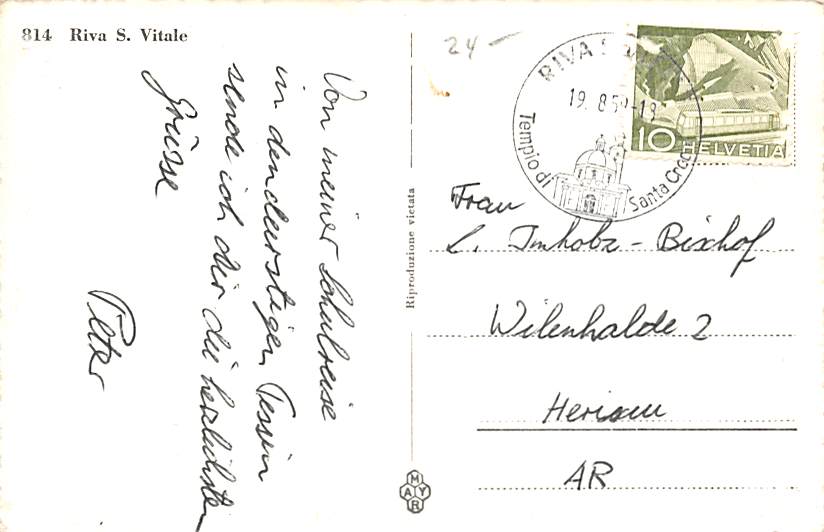 814 Riva S. Vitale
Von meiner Schulreise
in den durstigen Tessin
sende ich dir die herzlichsten
Grüsse
Peter
Riproduzione vietata
MAYR
24 -
RIVA S.
19. 8.5 -18
Tempio di Santa Croce
10 HELVETIA
Frau
L. Imholz - Bischof
Wilenhalde 2
Herisau
AR